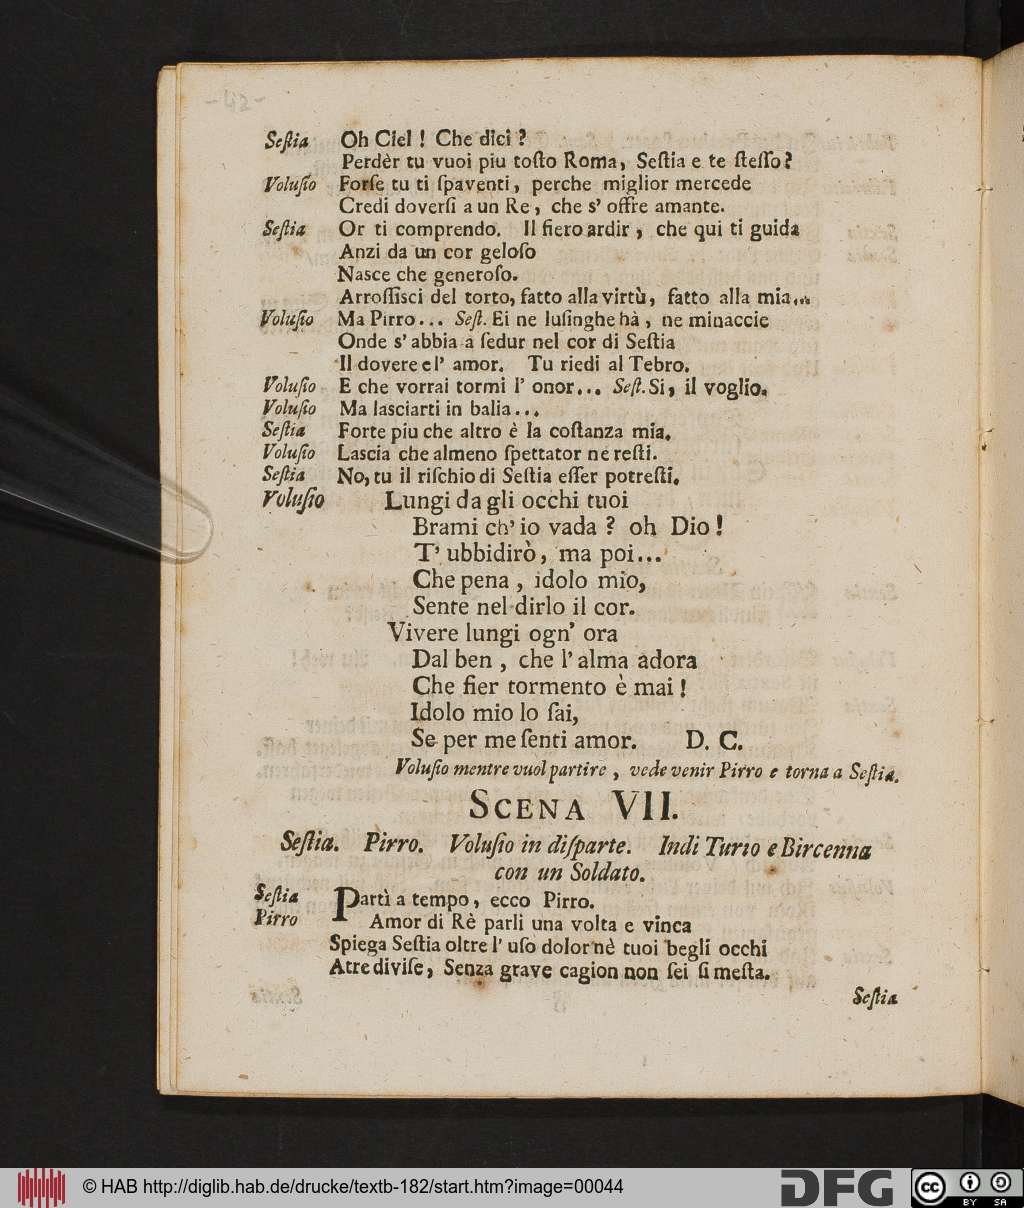 -42-
Seſtia Oh Ciel ! Che dici ?
Perdèr tu vuoi piu toſto Roma, Seſtia e te ſteſſo?
Voluſio Forſe tu ti ſpaventi, perche miglior mercede
Credi doverſi a un Re, che s' offre amante.
Seſtia Or ti comprendo. Il fiero ardir, che qui ti guida
Anzi da un cor geloſo
Nasce che generoſo.
Arroſſisci del torto, fatto alla virtù, fatto alla mia...
Voluſio Ma Pirro... Seſt. Ei ne luſinghe hà, ne minaccie
Onde s' abbia a ſedur nel cor di Seſtia
Il dovere e l' amor. Tu riedi al Tebro.
Voluſio E che vorrai tormi l' onor... Seſt. Si, il voglio.
Voluſio Ma lasciarti in balia...
Seſtia Forte piu che altro è la coſtanza mia.
Voluſio Lascia che almeno ſpettator ne reſti.
Seſtia No, tu il riſchio di Seſtia eſſer potreſti.
Voluſio Lungi da gli occhi tuoi
Brami ch' io vada ? oh Dio !
T' ubbidirò, ma poi...
Che pena , idolo mio,
Sente nel dirlo il cor.
Vivere lungi ogn' ora
Dal ben , che l' alma adora
Che fier tormento è mai !
Idolo mio lo ſai,
Se per me ſenti amor. D. C.
Voluſio mentre vuol partire , vede venir Pirro e torna a Seſtia.
SCENA VII.
Seſtia. Pirro. Voluſio in diſparte. Indi Turio e Bircenna
con un Soldato.
Seſtia Partì a tempo, ecco Pirro.
Pirro Amor di Rè parli una volta e vinca
Spiega Seſtia oltre l' uſo dolor nè tuoi begli occhi
Atre diviſe, Senza grave cagion non ſei ſi meſta.
Seſtia
© HAB http://diglib.hab.de/drucke/textb-182/start.htm?image=00044
DFG
cc BY SA